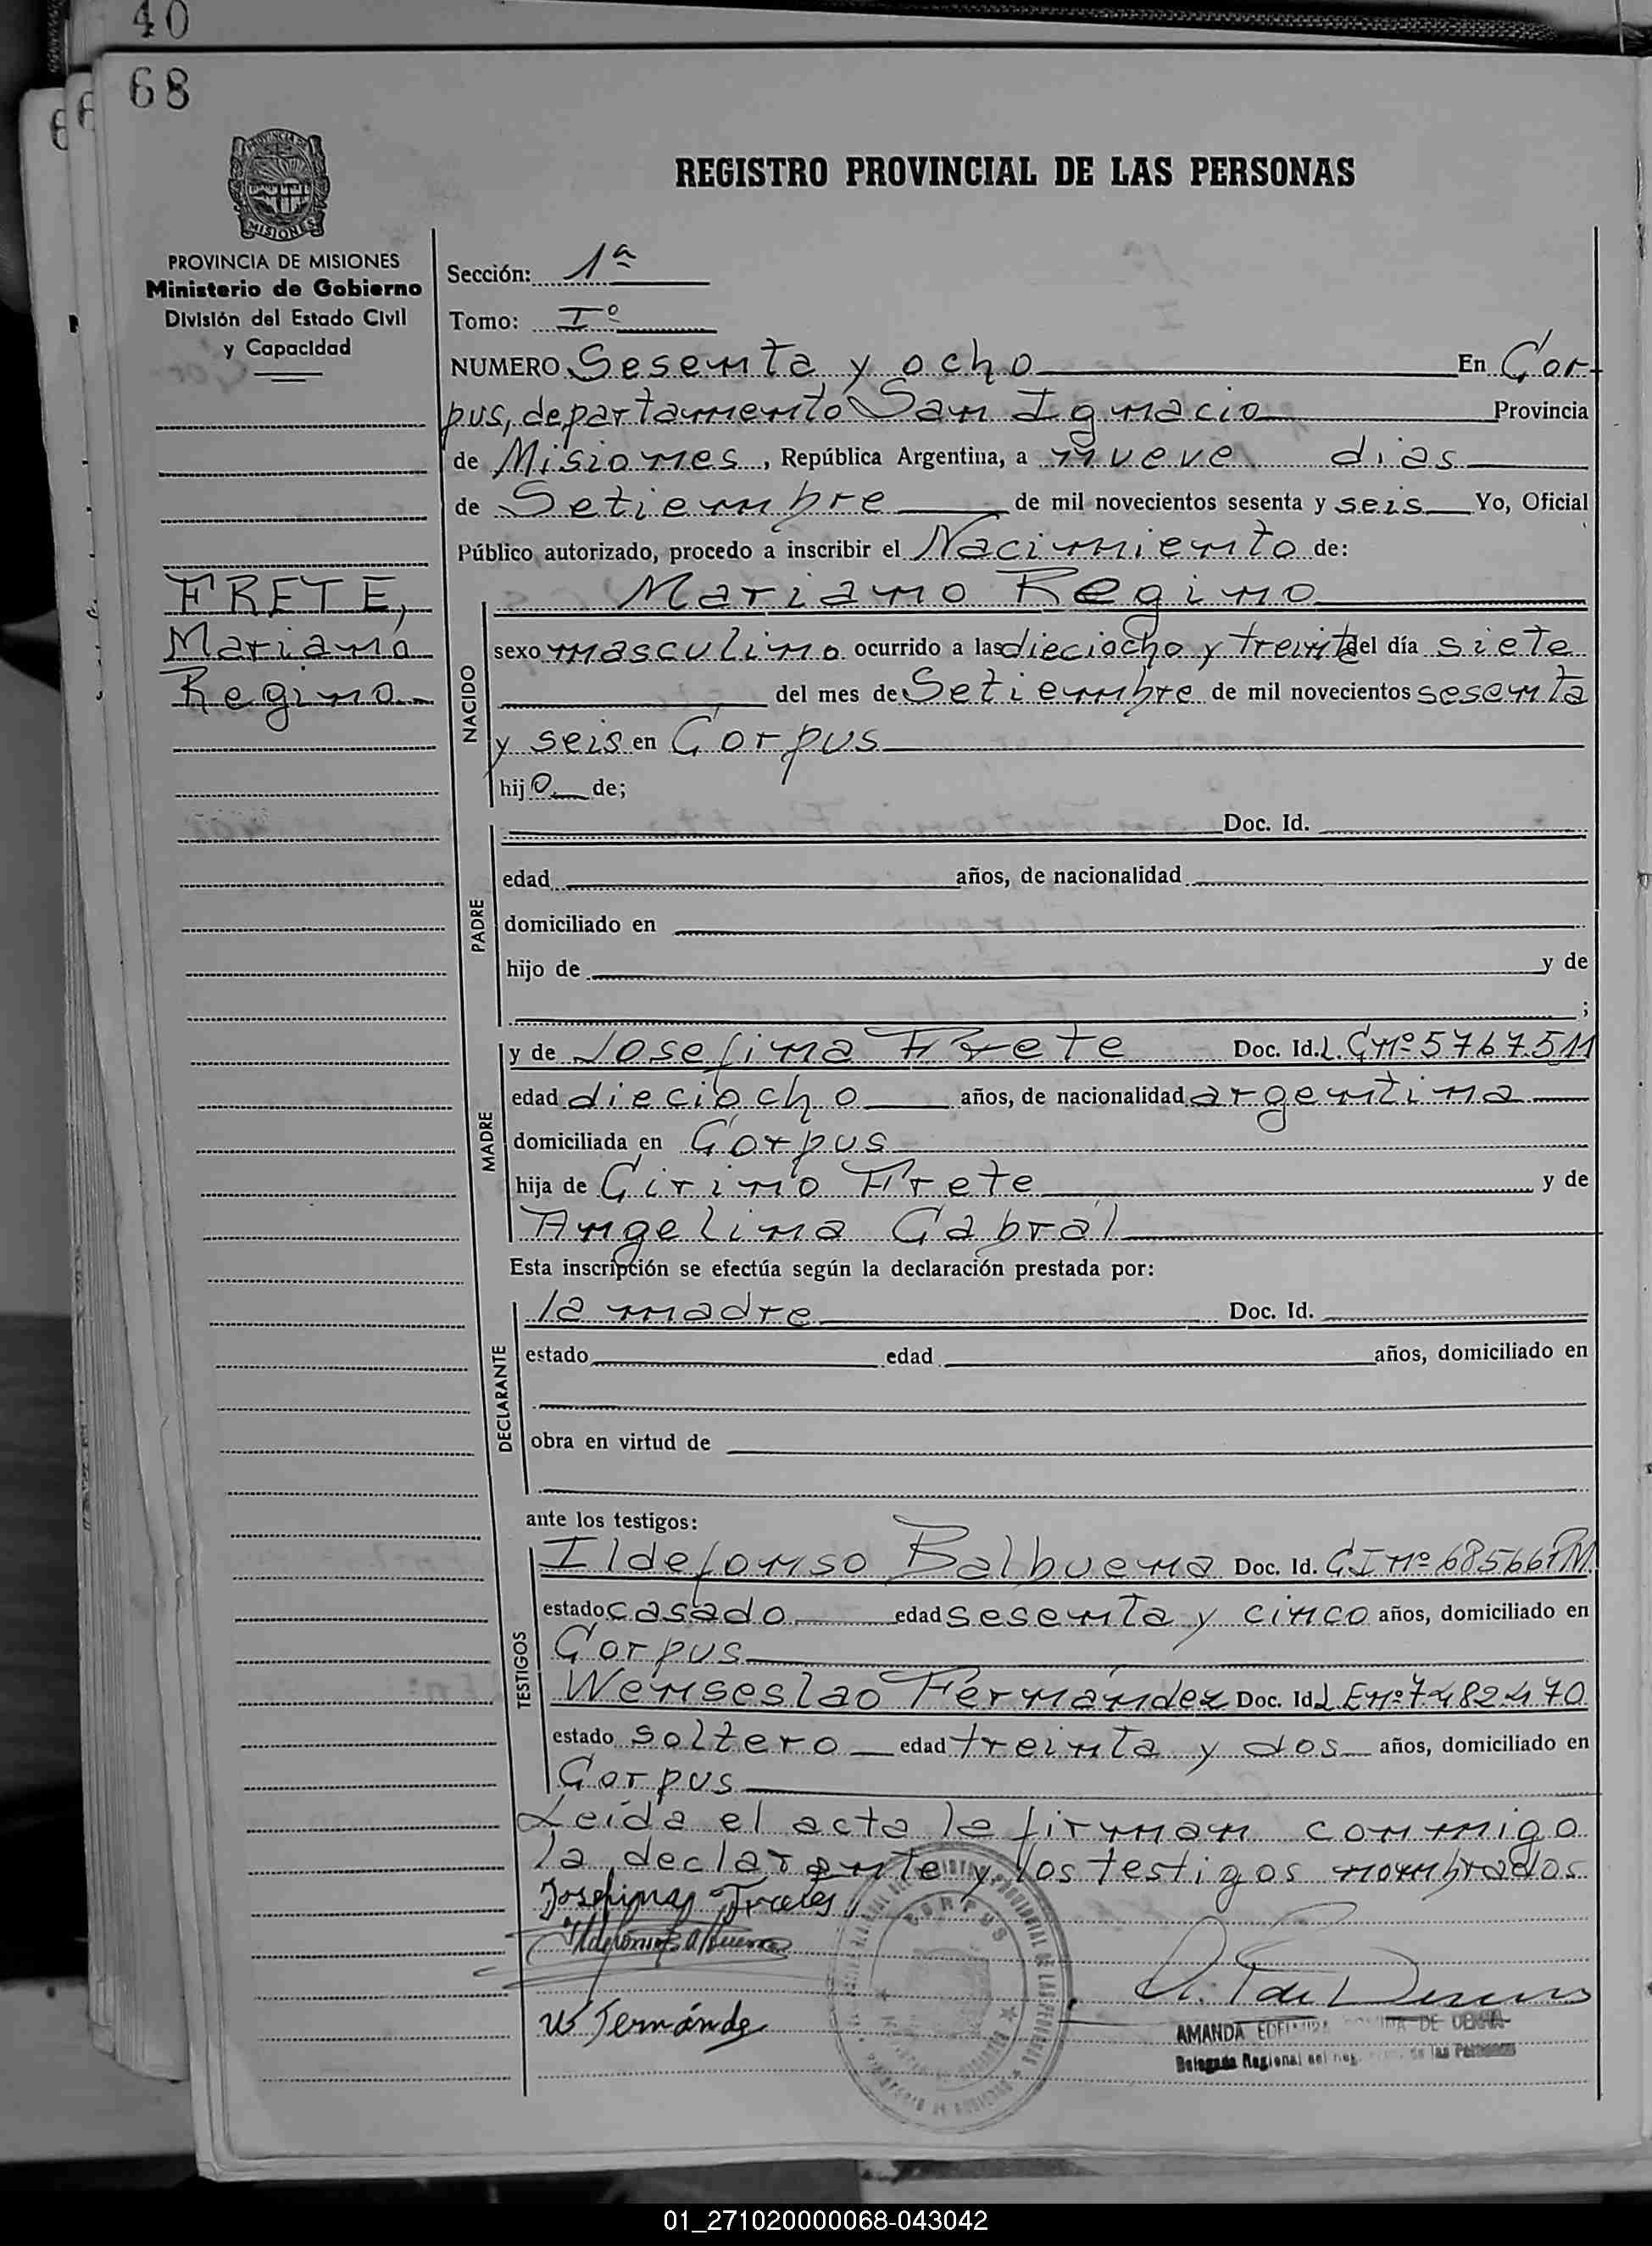 40
68
PROVINCIA DE MISIONES
Ministerio de Gobierno
División del Estado Civil
y Capacidad
REGISTRO PROVINCIAL DE LAS PERSONAS
Sección: 1ª
Tomo: Iº
NUMERO Sesenta y ocho En Cor-
pus, departamento San Ignacio Provincia
de Misiones, República Argentina, a nueve dias
de Setiembre de mil novecientos sesenta y seis Yo, Oficial
Público autorizado, procedo a inscribir el Nacimiento de:
FRETE,
Mariano
Regino
NACIDO
Mariano Regino
sexo masculino ocurrido a las dieciocho y treinta del día siete
del mes de Setiembre de mil novecientos sesenta
y seis en Corpus
hijo de;
PADRE
Doc. Id.
edad años, de nacionalidad
domiciliado en
hijo de y de
;
MADRE
y de Josefina Frete Doc. Id. L.C nº 5767511
edad dieciocho años, de nacionalidad argentina
domiciliada en Corpus
hija de Cirino Frete y de
Angelina Cabral
Esta inscripción se efectúa según la declaración prestada por:
DECLARANTE
la madre Doc. Id.
estado edad años, domiciliado en
obra en virtud de
ante los testigos:
TESTIGOS
Ildefonso Balbuena Doc. Id. CI nº
estado casado edad sesenta y cinco años, domiciliado en
Corpus
Wenseslao Fernández Doc. Id. L E nº 7482470
estado soltero edad treinta y dos años, domiciliado en
Corpus
Leída el acta la firman conmigo
la declarante y los testigos nombrados
Josefina
Ildefonso Balbuena
W Fernández
CORPUS
AMANDA DE
Delegada Regional del Reg. de las Personas
01_271020000068-043042